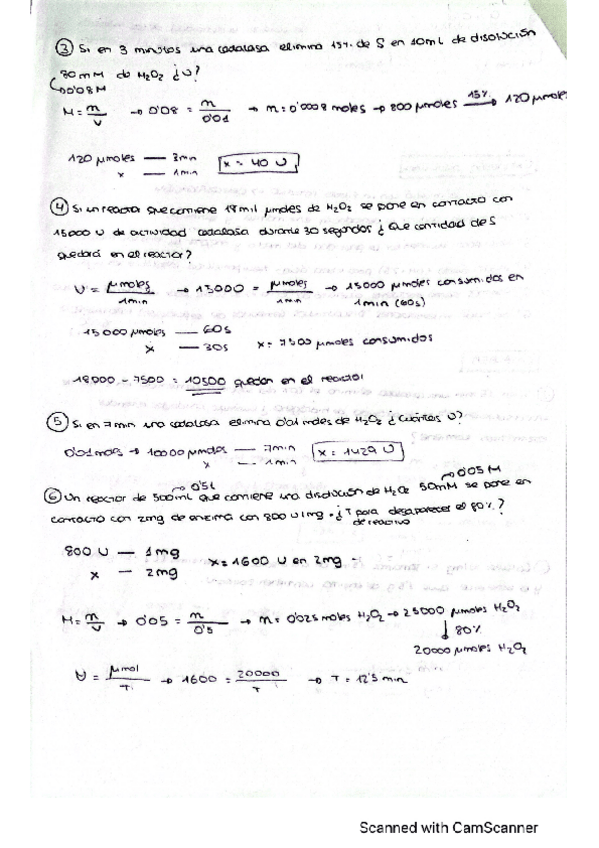 ③ Si en 3 minutos una catalasa elimina 15% de S en 10ml de disolución
80mM de H2O2 ¿U?
0'08M
M = m/V → 0'08 = m/0'01 → m = 0'0008 moles → 800 μmoles 15% → 120 μmoles
120 μmoles — 3min
x — 1min
x = 40 U
④ Si un reactor que contiene 18mil μmoles de H2O2 se pone en contacto con
15000 U de actividad catalasa durante 30 segundos ¿que cantidad de S
quedará en el reactor?
U = μmoles/1min → 15000 = μmoles/1min → 15000 μmoles consumidos en
1min (60s)
15000 μmoles — 60s
x — 30s
x = 7500 μmoles consumidos
18000 - 7500 = 10500 quedan en el reactor
⑤ Si en 7min una catalasa elimina 0'01 moles de H2O2 ¿cuántos U?
0'01 moles → 10000 μmoles — 7min
x — 1min
x = 1429 U
→ 0'5l
→ 0'05 M
⑥ Un reactor de 500ml que contiene una disolución de H2O2 50mM se pone en
contacto con 2mg de enzima con 800 U/mg. ¿T para desaparecer el 80%?
de reactivo
800 U — 1mg
x — 2mg
x = 1600 U en 2mg
M = m/V → 0'05 = m/0'5 → m = 0'025 moles H2O2 → 25000 μmoles H2O2
↓ 80%
20000 μmoles H2O2
U = μmol/T → 1600 = 20000/T → T = 12'5 min
Scanned with CamScanner